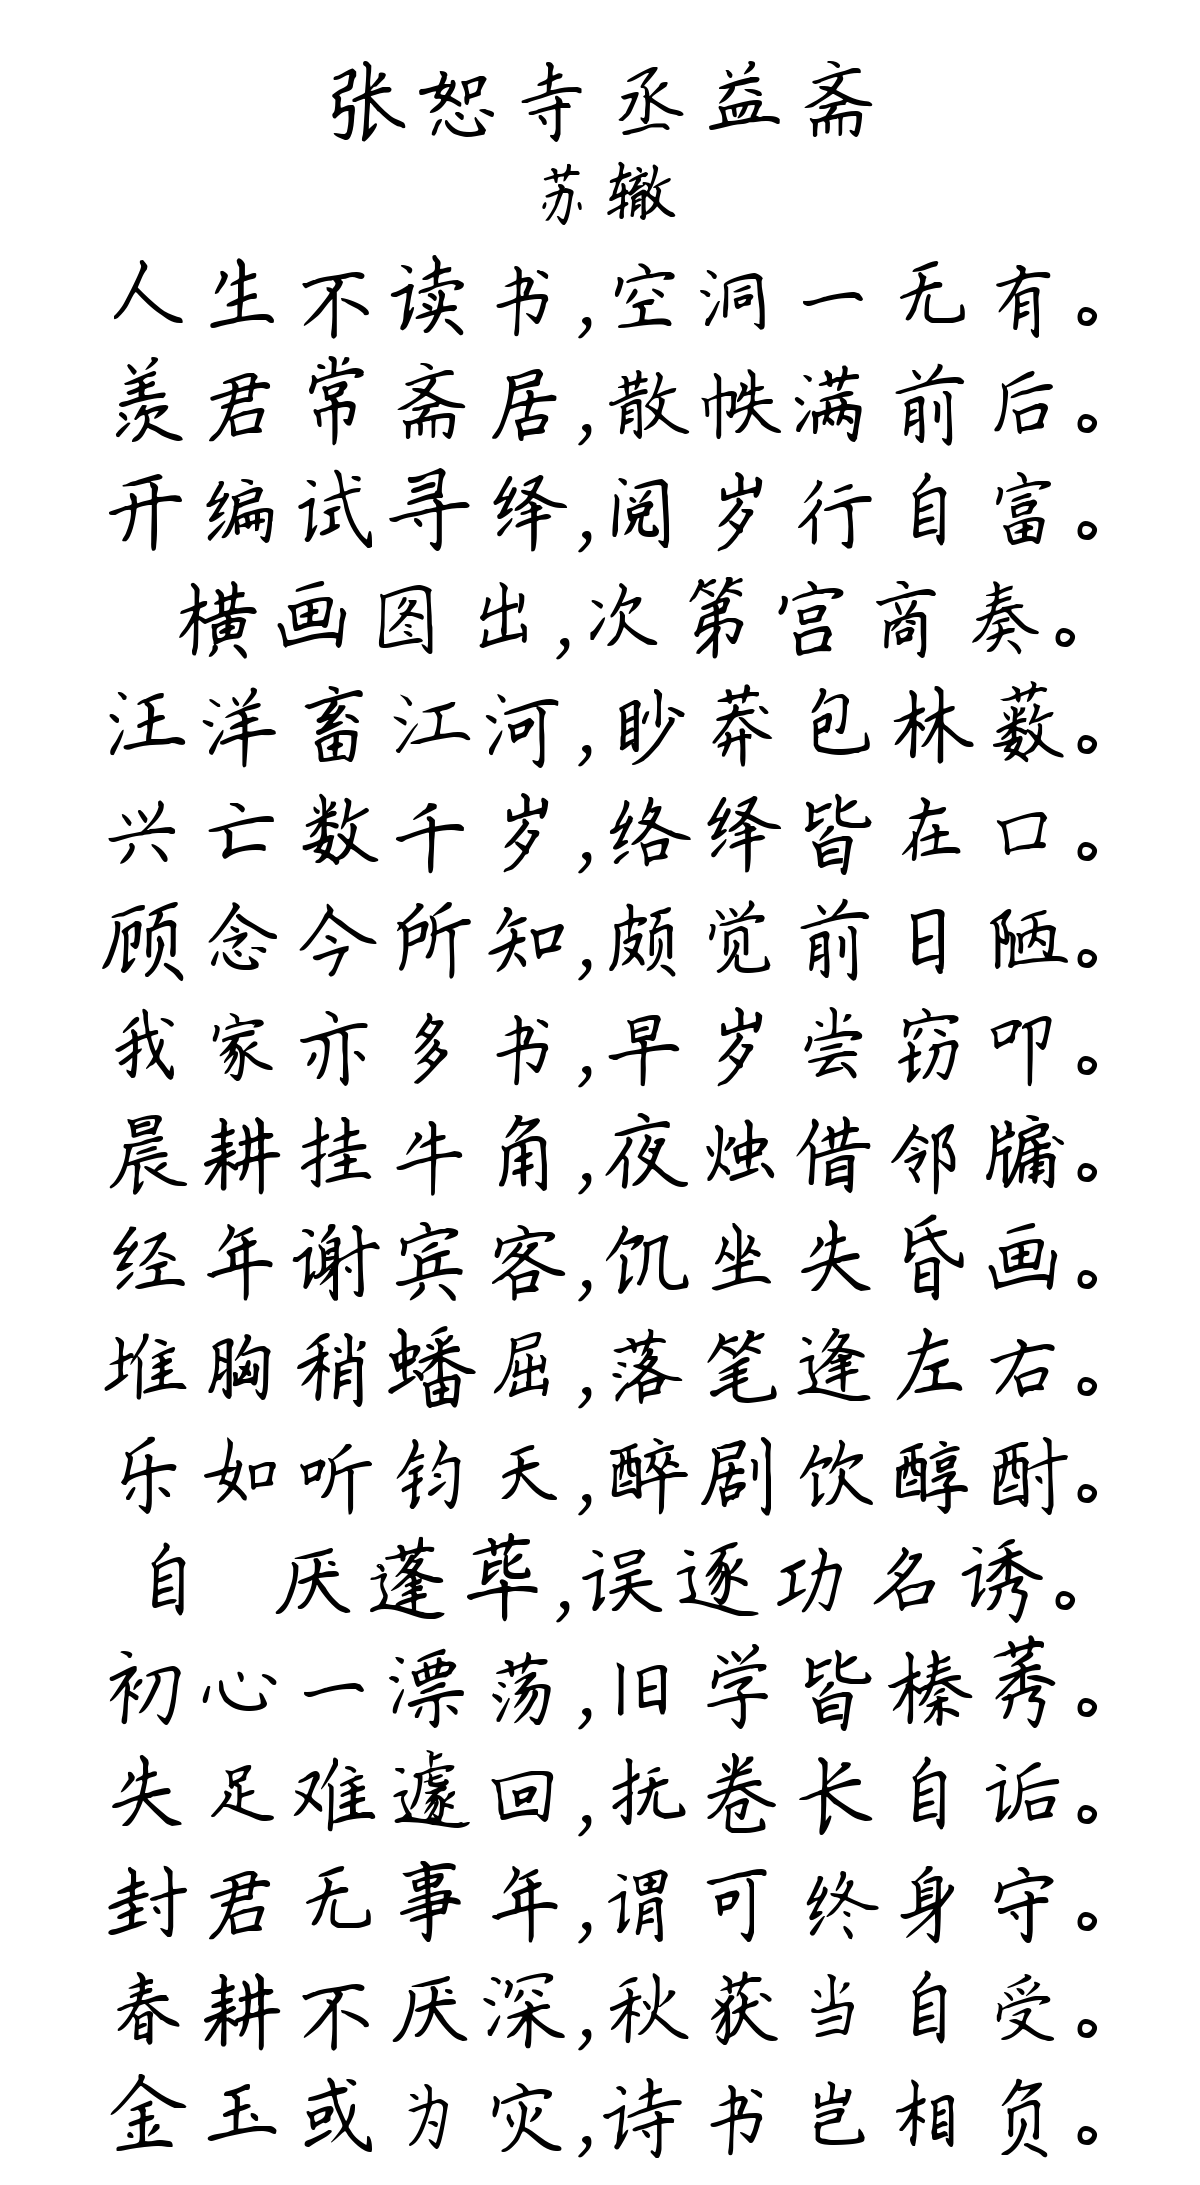 张恕寺丞益斋
苏辙
人生不读书,空洞一无有。
羡君常斋居,散帙满前后。
开编试寻绎,阅岁行自富。
横画图出,次第宫商奏。
汪洋畜江河,眇莽包林薮。
兴亡数千岁,络绎皆在口。
顾念今所知,颇觉前日陋。
我家亦多书,早岁尝窃叩。
晨耕挂牛角,夜烛借邻牖。
经年谢宾客,饥坐失昏画。
堆胸稍蟠屈,落笔逢左右。
乐如听钧天,醉剧饮醇酎。
自 厌蓬荜,误逐功名诱。
初心一漂荡,旧学皆榛莠。
失足难遽回,抚卷长自诟。
封君无事年,谓可终身守。
春耕不厌深,秋获当自受。
金玉或为灾,诗书岂相负。